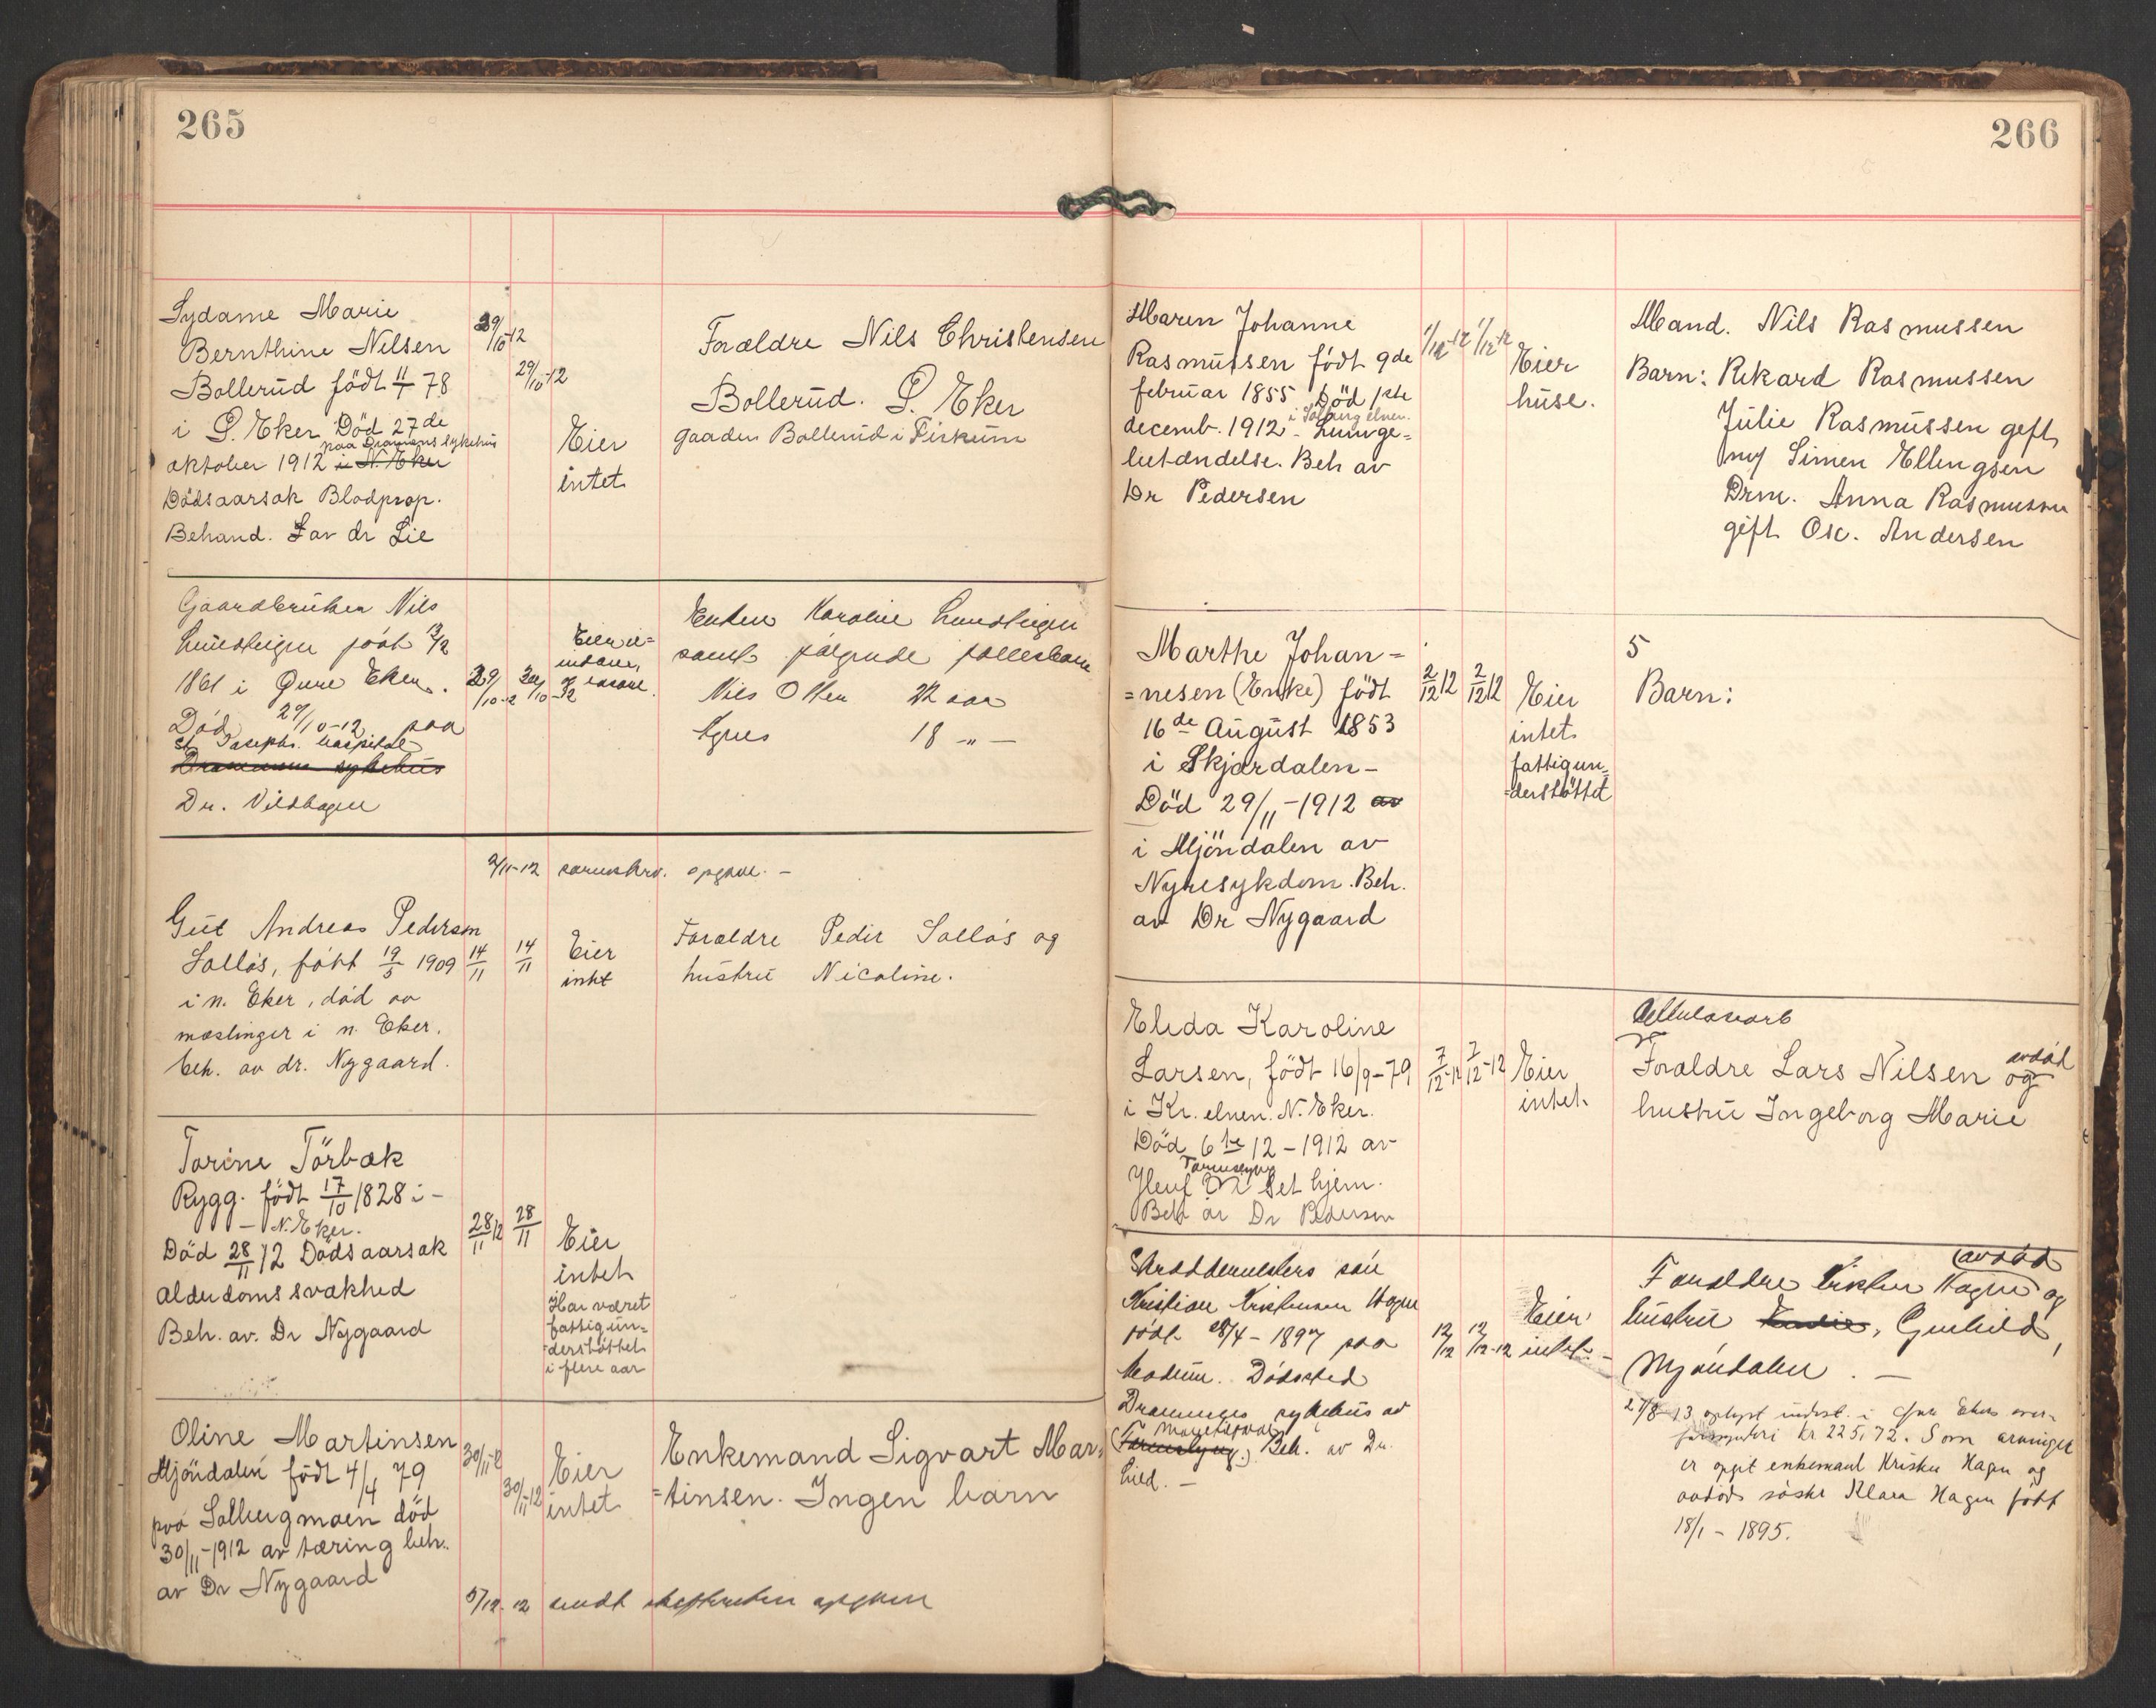 265
Lydame Marie
Bernthine Nilsen
Bollerud födt 11/7 78
i Ø. Eker Död 27de
paa Drammens sykehus
oktober 1912 i N. Eker
Dödsaarsak Blodprop.
Behand. av dr Lie
29/10-12
29/10-12
Eier
intet
Forældre Nils Christensen
Bollerud. Ø. Eker
gaarden Bollerud i Fiskum
Gaardbruker Nils
Lundteigen född 13/2
1861 i Øvre Eker.
Död 29/10-12 paa
St Josephs. hospital
Drammens sykehus
Dr. Vildhagen
29/10-12
30/10-12
Eier
Enken Karoline Lundteigen
samt følgende fællesbarn
Nils Otten 22 aar
Agnes 18 -"-
2/11-12 opgave. -
Gut Andreas Pedersen
Solløs, født 19/5 1909
i n. Eker, död av
mæslinger i n. Eker.
beh. av dr. Nygaard.
14/11
14/11
Eier
intet
Forældre Peder Solløs og
hustru Nicoline.
Torine Törbæk
Rygg. födt 17/10 1828 i -
- N. Eker.
Död 28/11 12 Dödsaarsak
alderdomssvakhed
Beh. av. Dr Nygaard
28/11 12
28/11
Eier
intet
Har været
fattigun=
derstöttet
i flere aar
Oline Martinsen
Mjöndalen födt 4/4 79
paa Solbergmoen död
30/11-1912 av tæring beh.
av Dr Nygaard
30/11-12
30/11-12
Eier
intet
Enkemand Sigvart Mar=
=tinsen. Ingen barn
5/12-12 sendt skifteretten opgaven
266
Maren Johanne
Rasmussen födt 9de
februar 1855 Död 1ste
i Solberg elven.
decemb. 1912 - Lunge=
betændelse. Beh av
Dr Pedersen
1/12-12
1/12-12
Eier
huse.
Mand. Nils Rasmussen
Barn: Rikard Rasmussen
Julie Rasmussen gift
m/ Simen Ellingsen
Drm. Anna Rasmussen
gift Osc. Andersen
Marthe Johan=
=nesen (Enke) födt
16de August 1853
i Skjærdalen -
Död 29/11-1912 av
i Mjöndalen av
Nyresykdom. Beh.
av Dr Nygaard
2/12 12
2/12 12
Eier
intet
fattigun=
=derstöttet
5
Barn:
Elida Karoline
Larsen, födt 16/9-79
i Kr. elven. N. Eker.
Död 6te 12-1912 av
Tarmslyng
i det hjem.
Beh av Dr Pedersen
7/12-12
7/12-12
Eier
intet
Cellulosearb
Forældre Lars Nilsen avdöd og
hustru Ingeborg Marie
Skræddermesters søn
Kristian Kristensen Hagen
född 28/4-1897 paa
Modum. Dödssted
Drammens sykehus av
(Tarmslyng.) Beh. av Dr.
12/12
12/12-12
Eier
intet -
avdöd
Forældre Kristen Hagen og
hustru Gunhild,
Mjöndalen. -
27/8-13 oplyst indest. i Øvre Ekers over-
formynderi kr 225,72. Som arvinger
er opgit enkemand Kristen Hagen og
avdöds søster Klara Hagen født
18/1-1895.